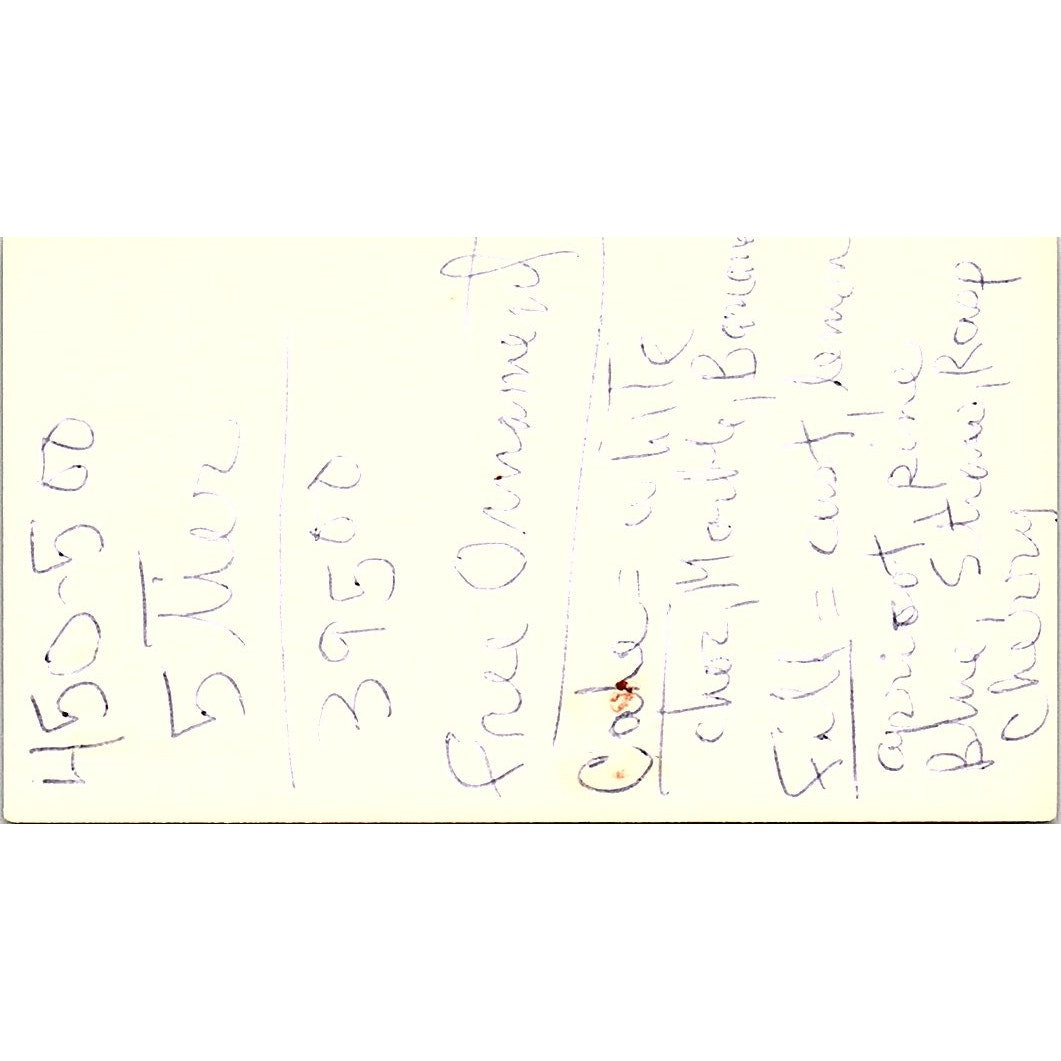 450-500
5 Tier
395 00
Free Ornament
Cake = whITE
choc, Marble, Banana
Fill = cust, lemon
apricot, Pine
Blue, Straw, Rasp
Cherry